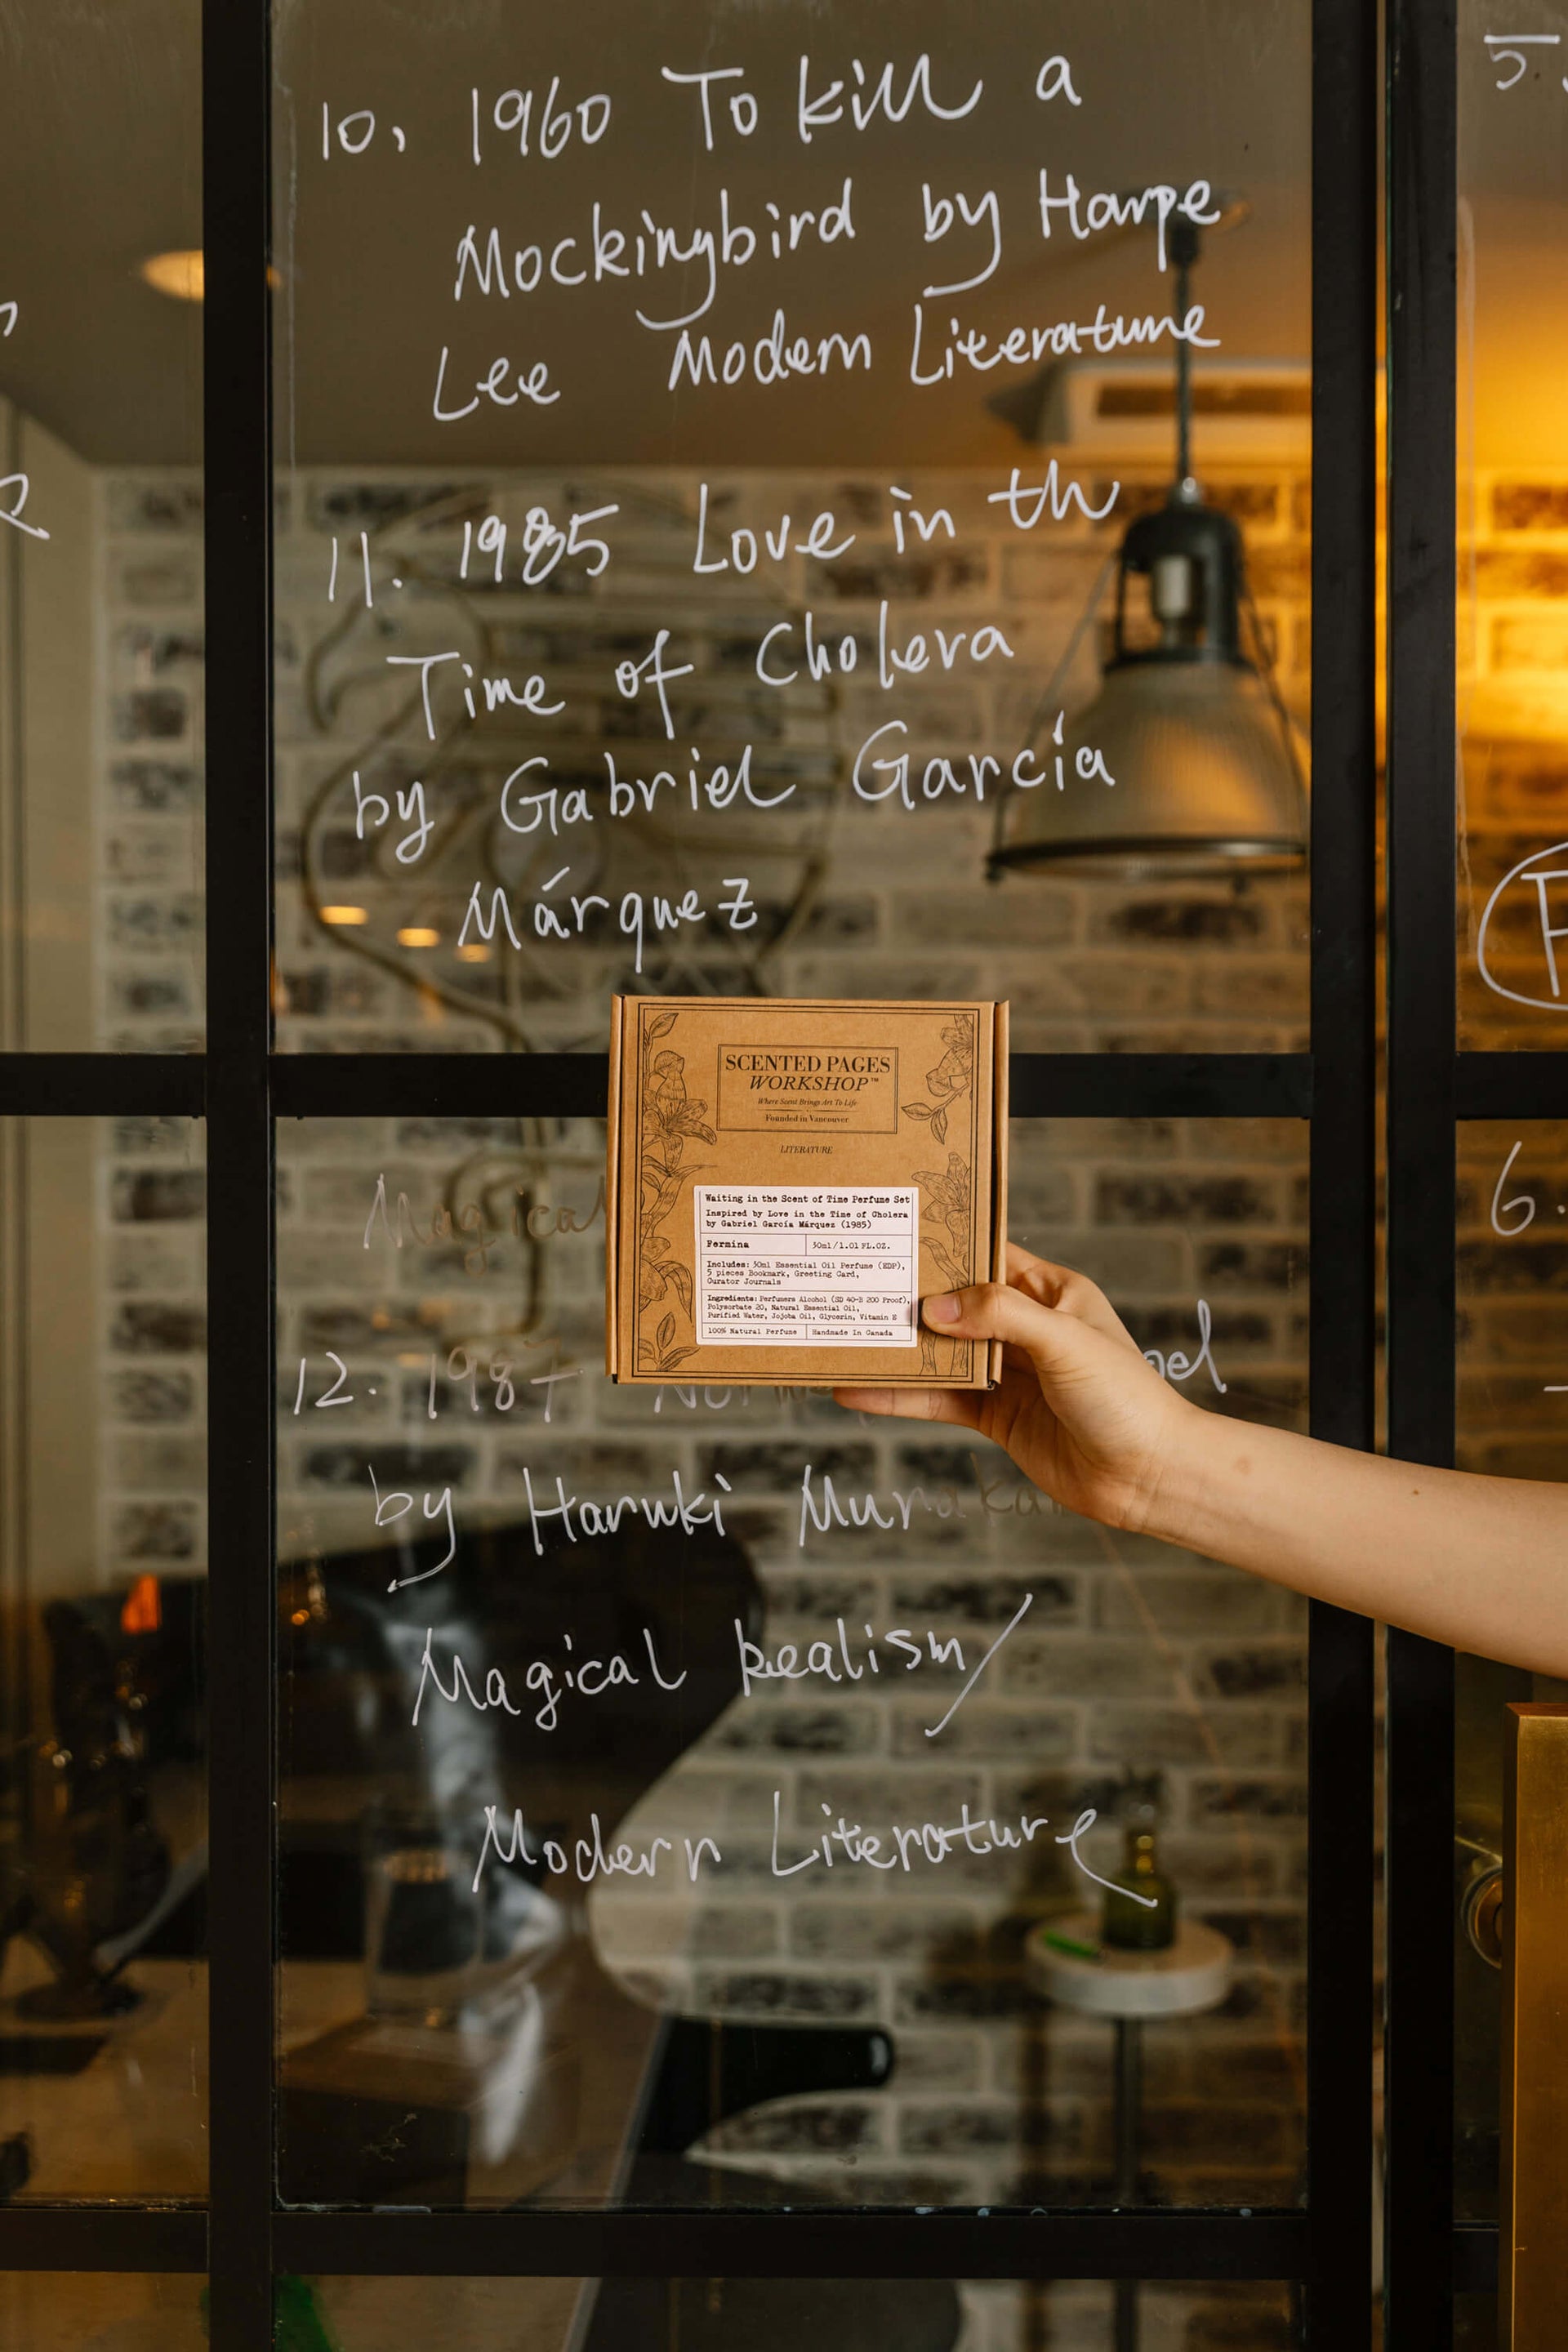 10. 1960 To kill a
Mockingbird by Harpe
Lee Modern Literature
11. 1985 Love in th
Time of Cholera
by Gabriel García
Márquez
SCENTED PAGES
WORKSHOP™
Where Scent Brings Art To Life
Founded in Vancouver
LITERATURE
Waiting in the Scent of Time Perfume Set
Inspired by Love in the Time of Cholera
by Gabriel García Márquez (1985)
Fermina 30ml/1.01 FL.OZ.
Includes: 30ml Essential Oil Perfume (EDP),
5 pieces Bookmark, Greeting Card,
Curator Journals
Ingredients: Perfumers Alcohol (SD 40-B 200 Proof),
Polysorbate 20, Natural Essential Oil,
Purified Water, Jojoba Oil, Glycerin, Vitamin E
100% Natural Perfume Handmade In Canada
Magical
12. 1987
by Haruki Murakam
Magical Realism/
Modern Literature
5.
6.